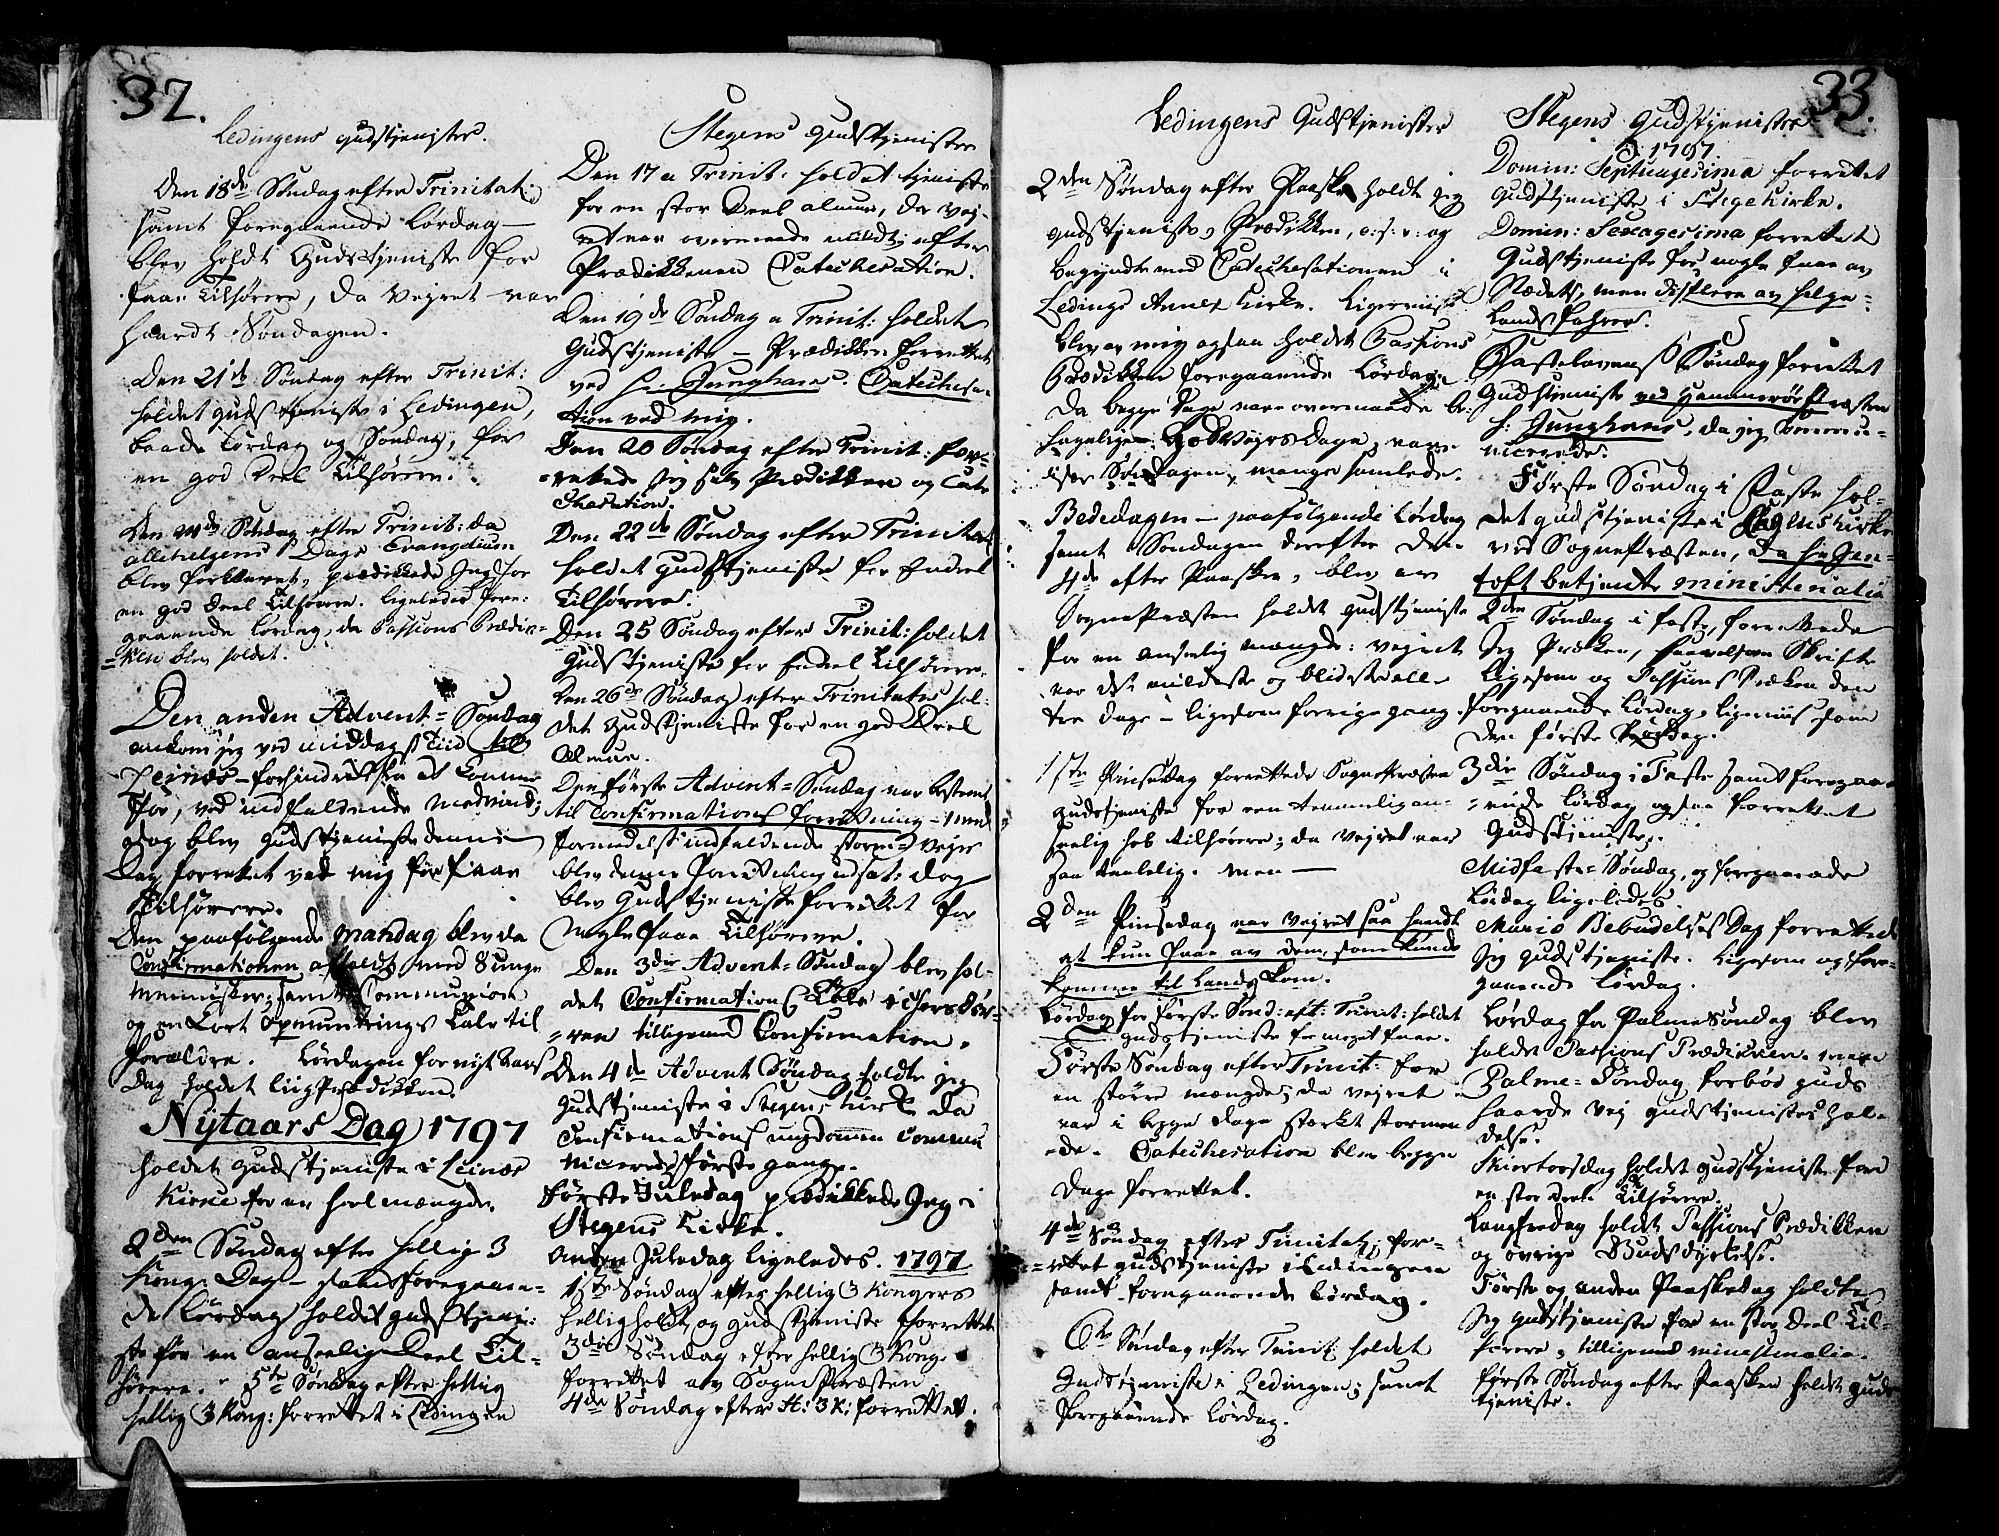 32.
Ledingens Gudstjenister.
Den 18de Søndag efter Trinitat:
samt foregaaende Lørdag —
blev holdt Gudstjeniste for
faae Tilhørere, da Vejret var
haardt Søndagen.
Den 21de Søndag efter Trinit:
holdet gudstjeniste i Ledingen,
baade Lørdag og Søndag, for
en god Deel Tilhørere.
Søndag efter Trinit: da
allehelgens Dags Evangelium
blev forklaret, prædikede Jeg for
en god Deel Tilhørere. ligeledes fore-
gaaende Lørdag, da Passions Prædi-
ken blev holdet.
Den anden Advent = Søndag
ankom jeg ved middags Tiid til
Leinæs — forhindret fra at komme
før, ved indfaldende modvind;
dog blev Gudstjeniste denne
Dag forrettet ved mig for faae
Tilhørere.
Den paafølgende mandag blev da
Confirmationen afholdt med 8 unge
mennisker, samt Communion
og en kort Opmuntrings Tale til
Forældre. Lørdagen for nyt Aars
Dag holdet liigprædikken.
Nytaars Dag 1797
holdet gudstjeniste i Leinæs
Kirke for en heel mængde.
2den Søndag efter hellig 3
Kong: Dag — samt foregaaen-
de Lørdag holdet gudstjeni-
ste for en anseelig Deel Til-
hørere. 5te Søndag efter hellig
hellig 3 Kong: forrettet i Ledingen
Stegens Gudstjenister
Den 17 a Trinit: holdet tjeniste
for en stor Deel almue, da Vej-
ret var overmaade mildt; efter
Prædikkenen Catechisation.
Den 19de Søndag a Trinit: holdet
Gudstjeniste — Prædikken forrettet
ved Hr. Junghans. Catechisa-
tion ved mig.
Den 20 Søndag efter Trinit: for-
rettede jeg selv Prædikken og Cate
chisation.
Den 22de Søndag efter Trinitat
holdet Gudstjeniste for Endeel
Tilhørere.
Den 25 Søndag efter Trinit: holdet
Gudstjeniste for Endeel Tilhørere.
Den 26de Søndag efter Trinitatis hol-
det Gudstjeniste for en god Deel
Almue.
Den første Advent = Søndag var bestemt
til Confirmations Forretning — men
formedelst indfaldende storm = Vejr
blev denne Forretning udsat: dog
blev Gudstjeniste forrettet for
Nogle faae Tilhørere.
Den 3die Advent = Søndag blev hol-
det Confirmations Tale i Chorsdør-
ren tilligemed Confirmation.
Den 4de Advent Søndag holdte jeg
Gudstjeniste i Stegens Kirke da
Confirmations ungdommen commu
nicerede første gang.
Første Juledag prædikkede Jeg i
Stegens Kirke.
Anden Juledag ligeledes. 1797
1ste Søndag efter hellig 3 Kongers
Helligholdt og gudstjeniste forrettet
3die Søndag efter hellig 3 Kong:
forrettet av SognePræsten
4de Søndag efter H: 3 K: forrettet.
Ledingens Gudstjenister
2den Søndag efter Paaske holdt jeg
gudstjeniste, Prædikken, o: s: v: og
begyndte med Catechisationen i
Ledings Annex Kirke. Ligeviis
blev av mig ogsaa holdet Passions
Prædikken foregaaende Lørdag.
Da begge Dage vare overmaade be-
hagelige Godvejrs Dage, vare
især Søndagen, mange samlede.
Bededagen — paafølgende Lørdag
samt Søndagen derefter den
4de efter Paasken, blev av
SognePræsten holdet gudstjeniste
for en anseelig mængde: vejret
var det mildeste og blideste alle
tre Dage — ligesom forrige gang.
1ste Pinsedag forrettede SognePræsten
gudstjeniste for een temmelig an-
seelig hob Tilhørere; da vejret var
saa taalelig. men —
2den Pinsedag var vejret saa haardt
at kun faae av dem, som kunde
komme til Lands kom.
Lørdag for første Sønd: eft: Trinit: holdet
gudstjeniste for meget faae.
Første Søndag efter Trinit: for
en større mængde; da vejret
var i begge Dage stærkt stormen
de. Catechisation blev begge
Dage forrettet.
4de Søndag efter Trinitat: for-
rettet gudstjeniste i Ledingen
samt foregaaende Lørdag.
6te Søndag efter Trinit: holdet
Gudstjeniste i Ledingen; samt
foregaaende Lørdag.
33.
Stegens Gudstjenister
1797
Domin: Septuagesima forrettet
Gudstjeniste i Stege Kirke.
Domin: Sexagesima forrettet
Gudstjeniste for nogle faae av
Stædets, men de fleere av Helge-
lands farere.
Fastelavens Søndag forrettet
Gudstjeniste ved Hammerøe Præsten
H: Junghans, da jeg commu-
nicerede.
Første Søndag i Faste hol-
det gudstjeniste i Stegens Kirke
ved SognePræsten, da Hr Jen-
toft betjente ministerialia
2den Søndag i faste, forrettede
Jeg Præken, saavelsom Skrifte
Ligesom og Passions Præken den
foregaaende Lørdag, ligeviis som
den første Lørdag.
3die Søndag i Faste samt foregaa-
ende Lørdag ogsaa forrettet
Gudstjeniste.
Midfaste = Søndag, og foregaaende
Lørdag ligeledes
Mariæ Bebudelses Dag forrettede
Jeg gudstjeniste. Ligesom og fore-
gaaende Lørdag.
Lørdag for Palme Søndag blev
holdet Passions Prædikken. men
Palme = Søndag forbød Guds
haarde vejr gudstjenistes hol-
delse.
Skiertorsdag holdet gudstjeniste for
en stor Deel Tilhørere.
Langfredag holdet Passions Prædikken
og øvrige Gudsdyrkelse.
Første og anden Paaskedag holdte
Jeg gudstjeniste for en stor Deel Til-
hørere, tilligemed ministerialia.
Første Søndag efter Paasken holdt guds
tjeniste.